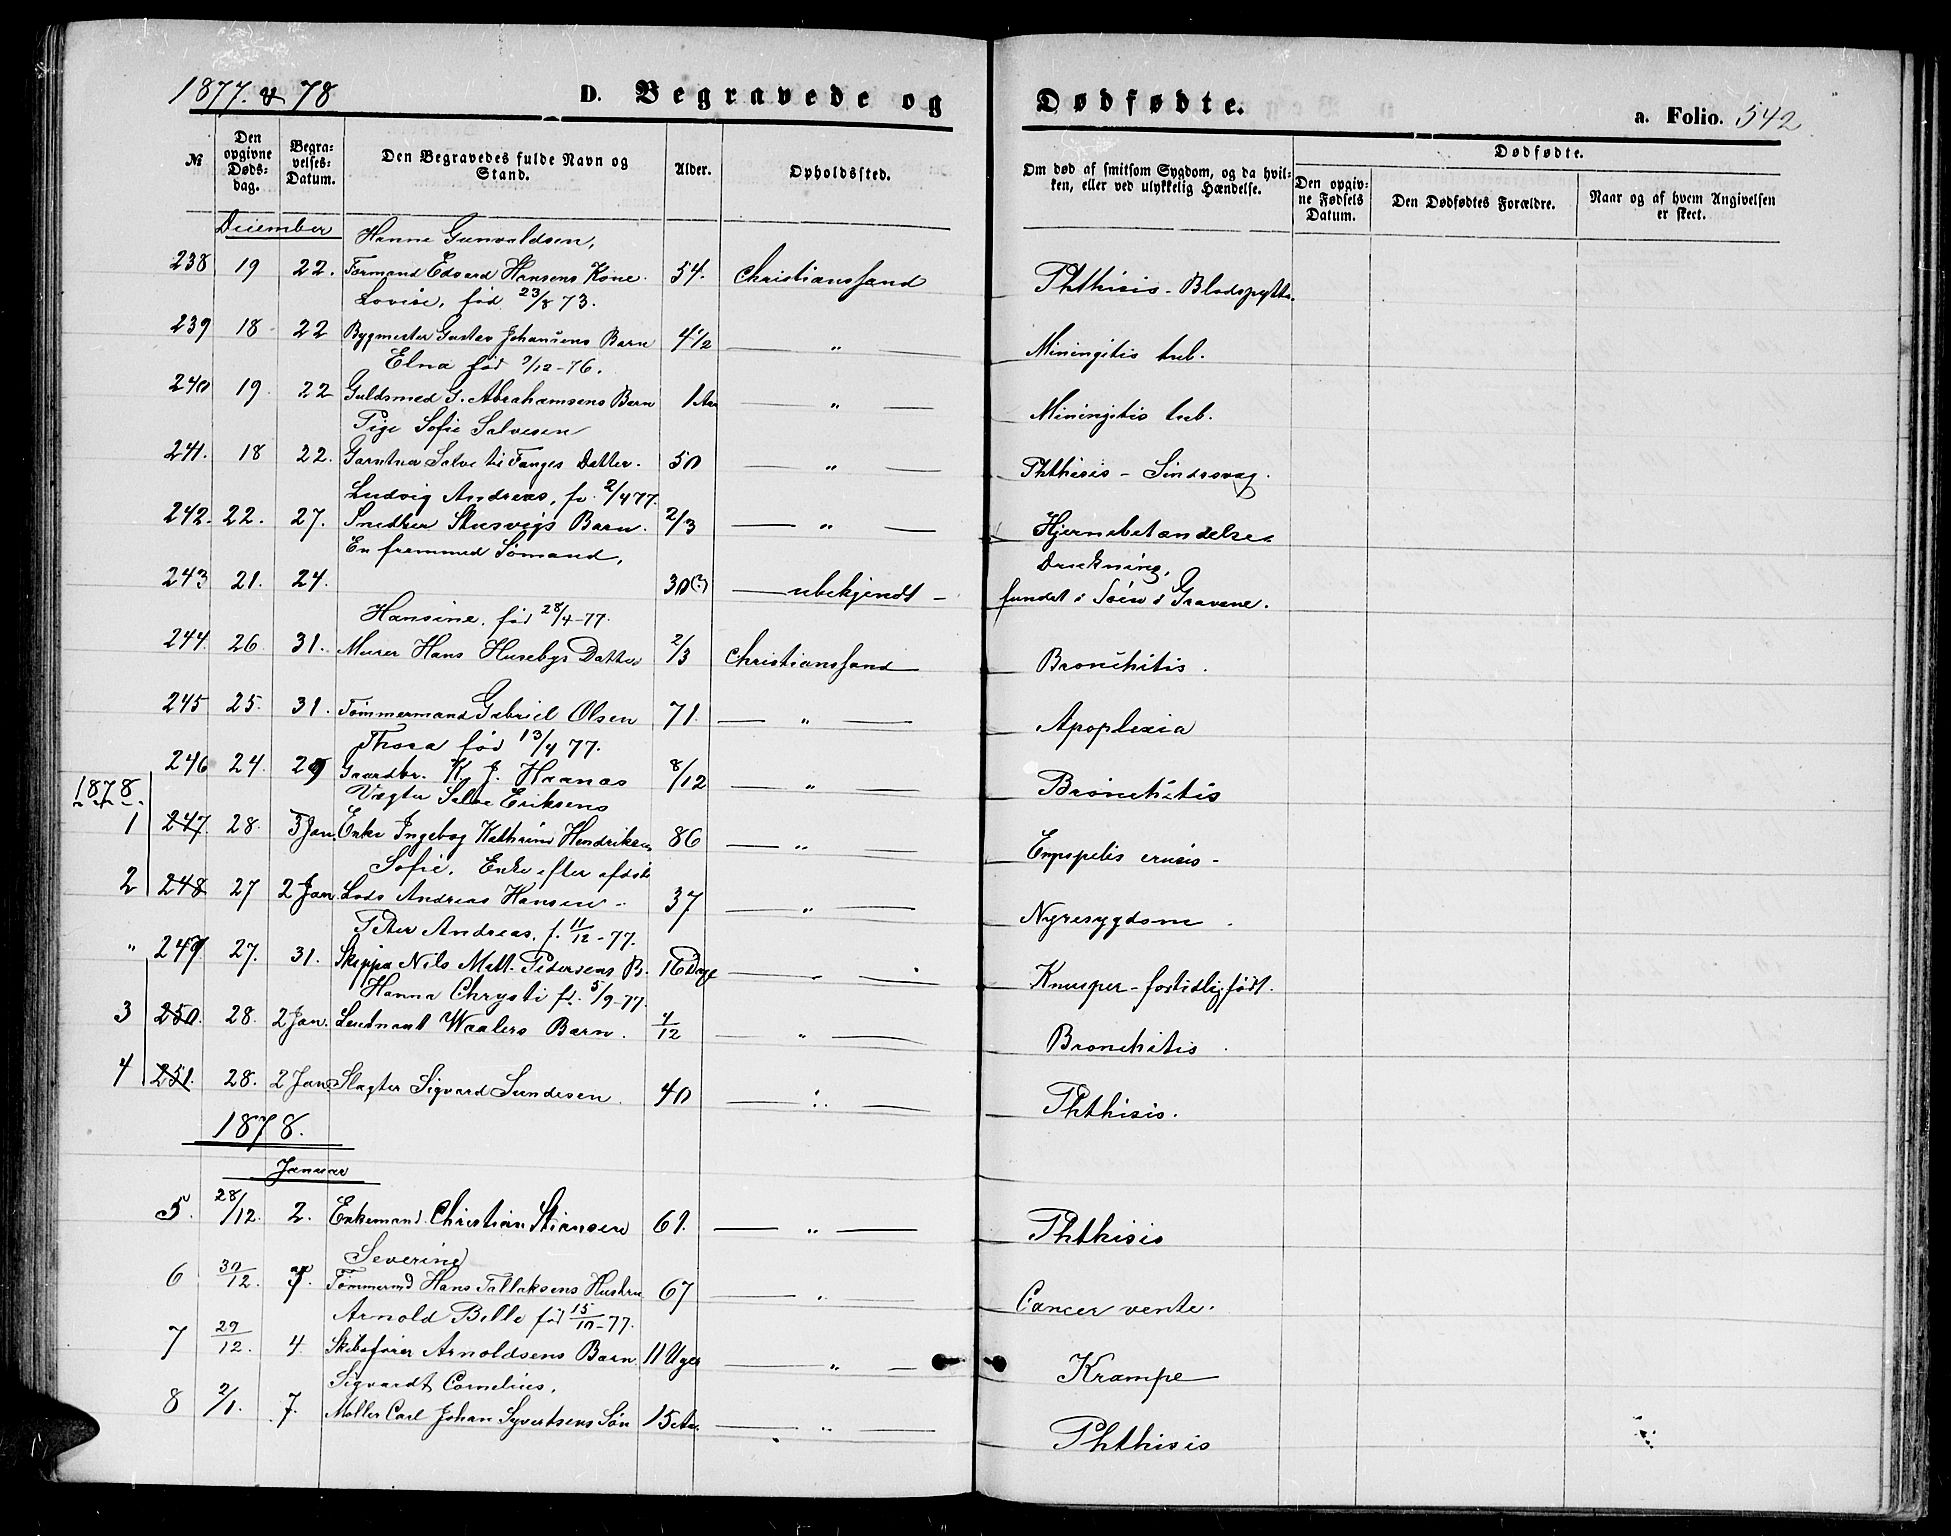 1877 & 78
D. Begravede og Dødfødte.
a. Folio. 542
№
Den opgivne Døds-dag.
Begra-velses-Datum.
Den Begravedes fulde Navn og Stand.
Alder.
Opholdssted.
Om død af smitsom Sygdom, og da hvil-ken, eller ved ulykkelig Hændelse.
Dødfødte.
Den opgiv-ne Fødsels Datum.
Den Dødfødtes Forældre.
Naar og af hvem Angivelsen er skeet.
December
Hanne Gunvaldsen,
238 19 22. Formand Edvard Hansens Kone. 54. Christianssand Phthisis - Blodspytt.
Lovise, fød 23/8 73.
239 18 22 Bygmester Gustav Johansens Barn 4 1/2 — " — Miningitis tub.
Elna fød 7/12-76.
240 19. 22 Guldsmed G. Abrahamsens Barn 1 Aar — " — Miningitis tub.
Pige Sofie Salvesen
241. 18 22. Garntner Salve til Fanges Datter. 50 — " — Phthisis - Sindssvag.
Ludvig Andreas, f. 2/4 77.
242. 22. 27. Snedker Stusvigs Barn. 2/3 — " — Hjernebetændelse.
En fremmed Sømand,
243 21. 24. 30(?) — ubekjendt - Drukning, fundet i Søen i Gravene.
Hansine, fød 28/4-77.
244. 26. 31. Murer Hans Husebys Datter 2/3 Christianssand Bronchitis.
245 25. 31. Tømmermand Gabriel Olsen 71. — " — Apoplexia
Thora fød 13/4 77.
246 24. 29 Gaardbr. K. J. Haanas 8/12 — " — Bronchitis
1878.
Vægter Salve Eriksens
1 247. 28. 3 Jan. Enke Ingebog Kathrine Hendriksen 86 — " —
Sofie, Enke efter afdøde
2 248 27 2 Jan. Lods Andreas Hansen - 37 — " — Nyresygdom.
Peter Andreas, f. 11/12-77.
" 249 27. 31. Skipper Nils Matt. Pedersens B. 16 Dage — " — Knusper - fortidlig født.
Hanna Chrysti f. 5/9-77.
3 250. 28. 2 Jan. Leutnant Waalers Barn. 4/12 — " — Bronchitis.
4 251. 28. 2 Jan. Slagter Sigvard Sundesen. 40 — " — Phthisis.
1878.
Januar
5. 28/12. 2. Enkemand Christian Stiansen 61. — " — Phthisis
Severine
6 30/12. 7. Tømmermd Hans Tallaksens Hustru 67 — " — Cancer vente.
Arnold Bille fød 15/10-77.
7 29/12. 4. Skibsfører Arnoldsens Barn 11 Uger — " — Krampe
Sigvardt Cornelius,
8 2/1. 7. Møller Carl Johan Syvertsens Søn 15 Aar. — " — Phthisis